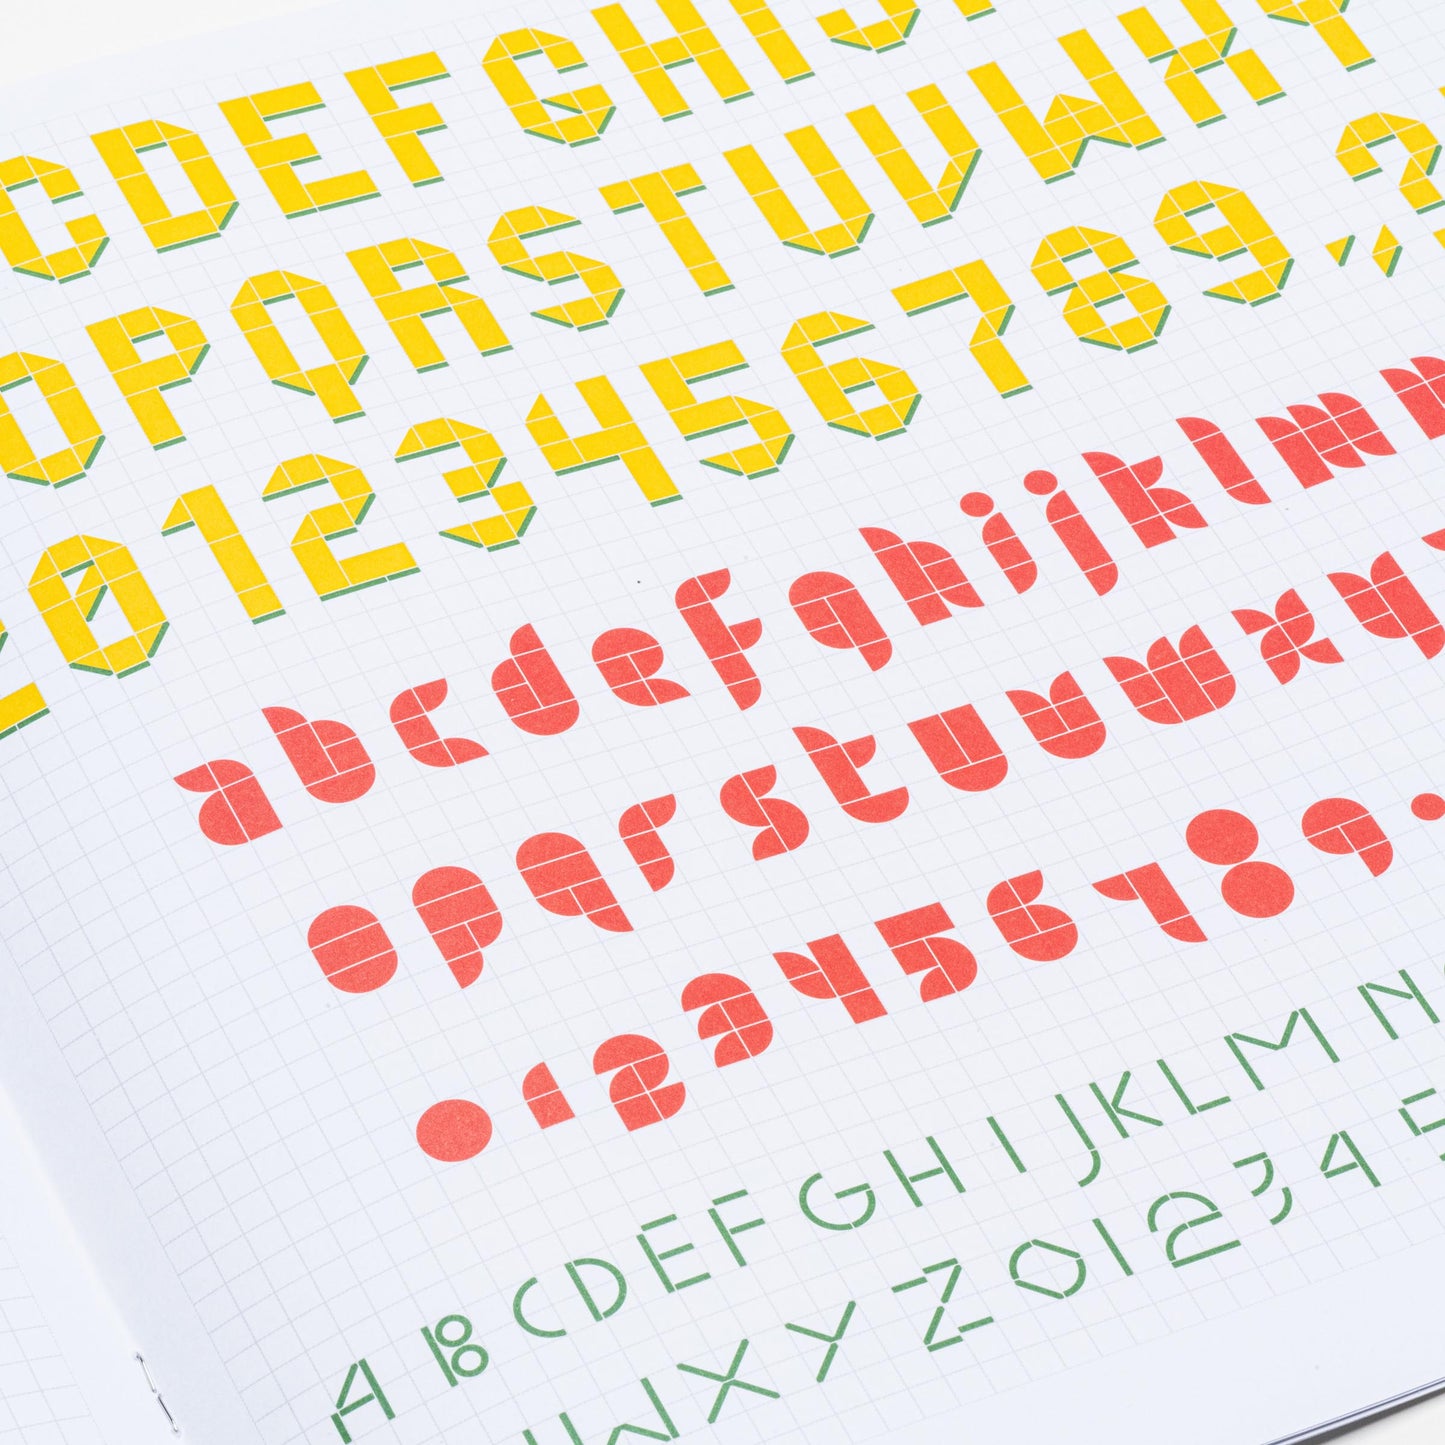 CDEFGHIJ
OPQRSTUVWXY
0123456789,?
abcdefghijklmn
opqrstuvwxyz
0123456789.
ABCDEFGHIJKLMN
WXYZ01234